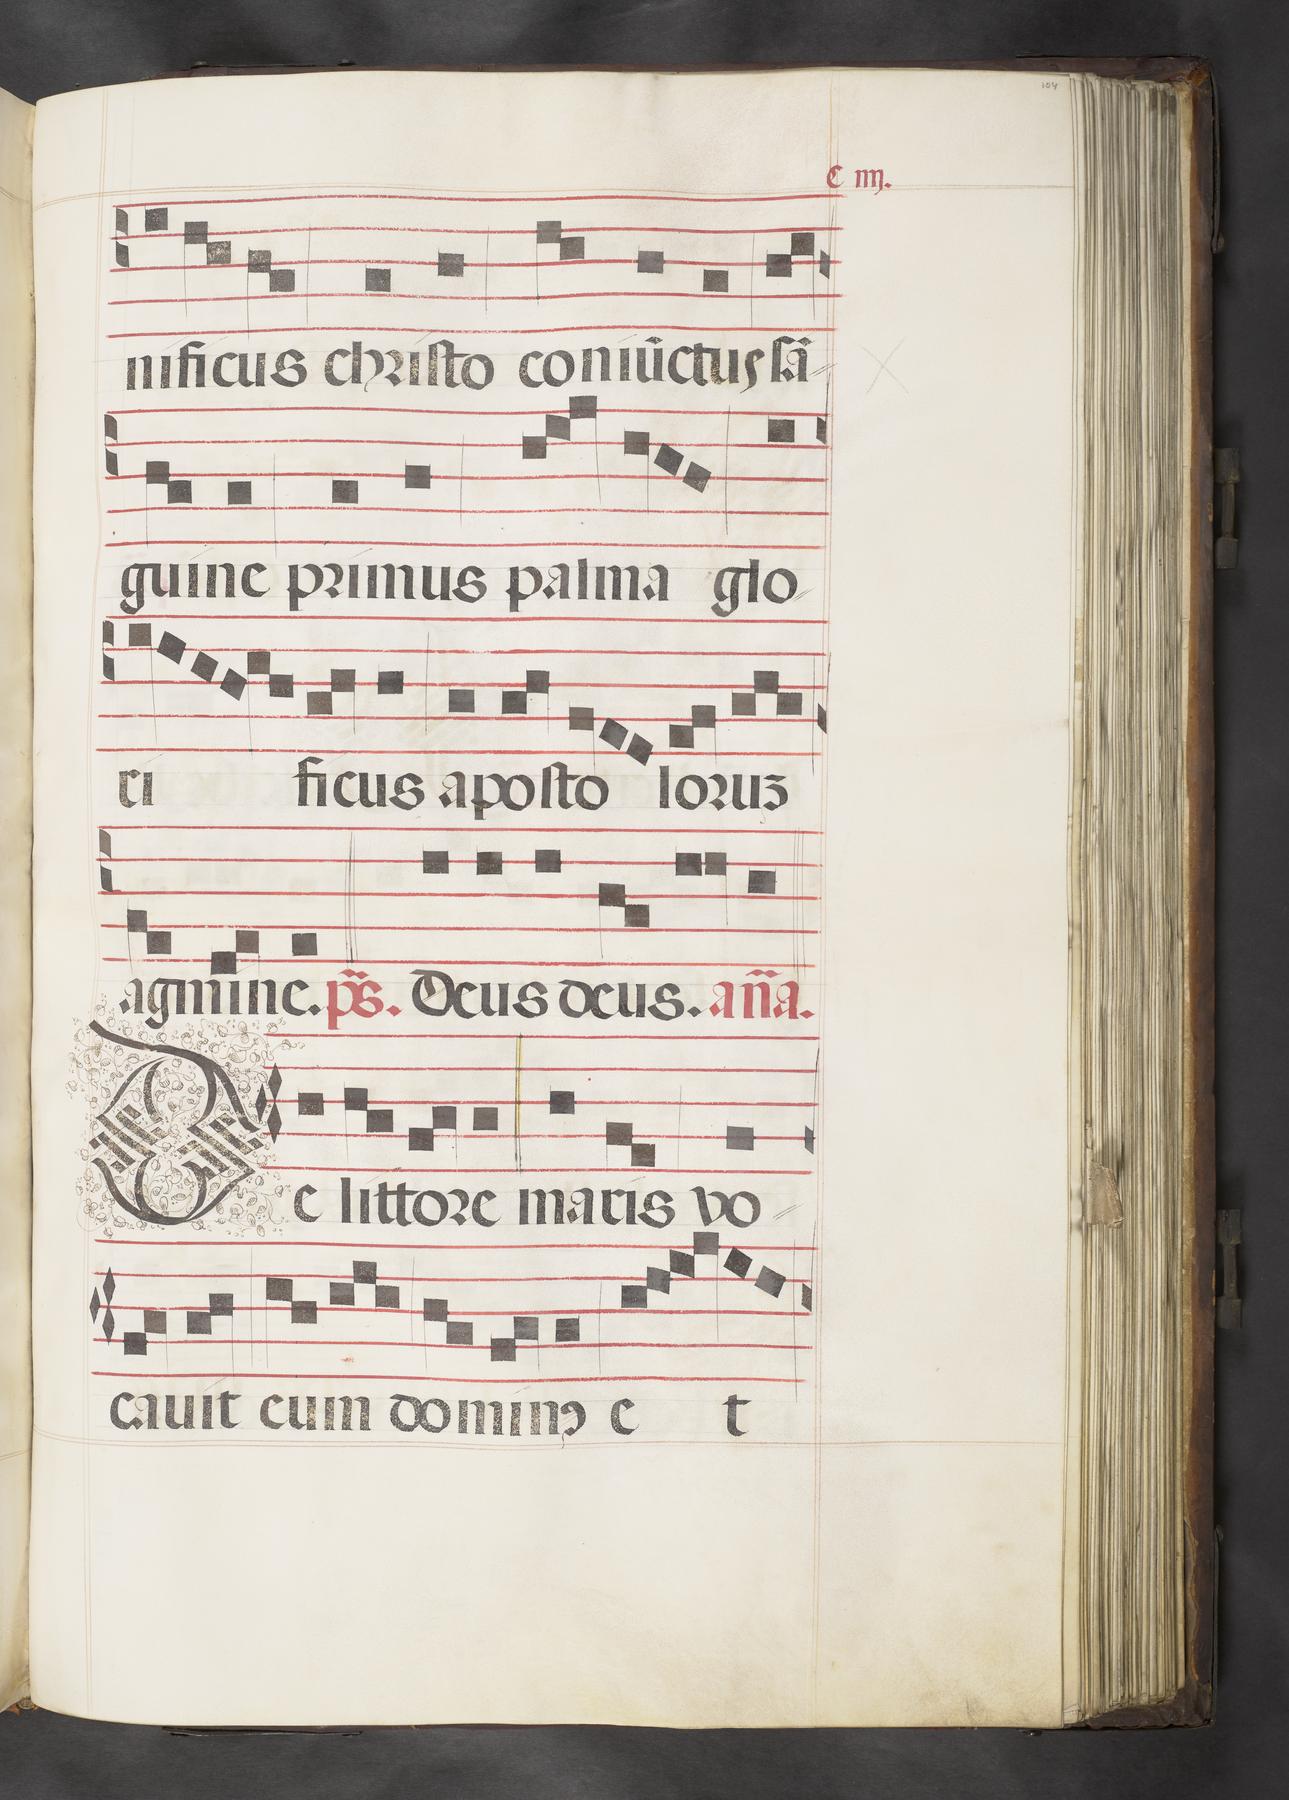 104
C iiij.
nificus christo coniūctus sā
guine primus palma glo
ri ficus aposto loruʒ
agmine. ps̄. Deus deus. an̄a.
De littore maris vo
cauit eum dominꝯ e t